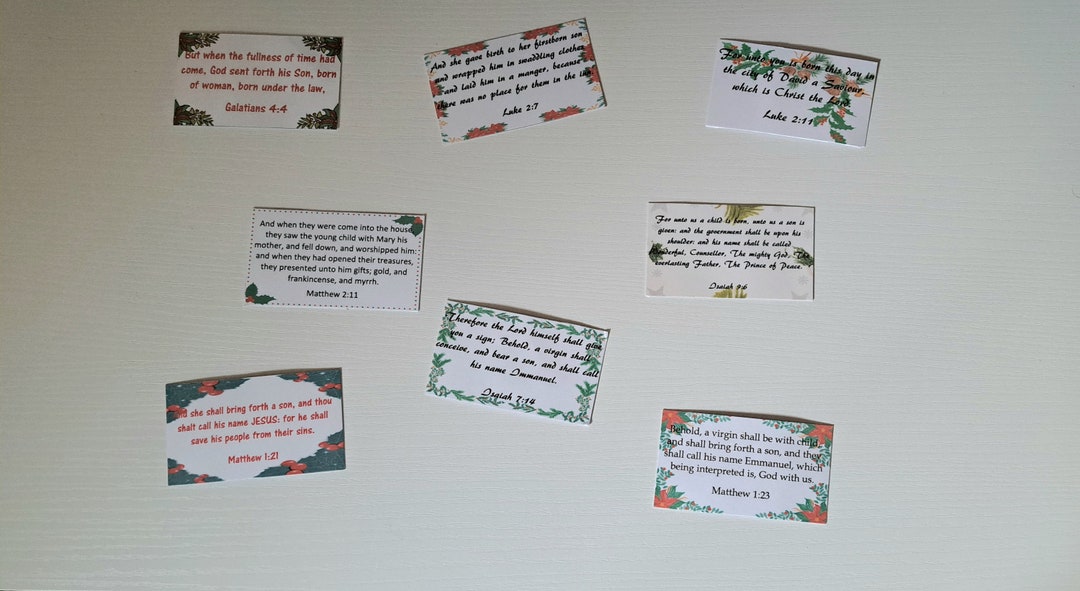 But when the fullness of time had
come, God sent forth his Son, born
of woman, born under the law,
Galatians 4:4
And she gave birth to her firstborn son
and wrapped him in swaddling clothes
and laid him in a manger, because
there was no place for them in the inn.
Luke 2:7
For unto you is born this day in
the city of David a Saviour,
which is Christ the Lord.
Luke 2:11
And when they were come into the house,
they saw the young child with Mary his
mother, and fell down, and worshipped him:
and when they had opened their treasures,
they presented unto him gifts; gold, and
frankincense, and myrrh.
Matthew 2:11
For unto us a child is born, unto us a son is
given: and the government shall be upon his
shoulder: and his name shall be called
Wonderful, Counsellor, The mighty God, The
everlasting Father, The Prince of Peace.
Isaiah 9:6
Therefore the Lord himself shall give
you a sign; Behold, a virgin shall
conceive, and bear a son, and shall call
his name Immanuel.
Isaiah 7:14
And she shall bring forth a son, and thou
shalt call his name JESUS: for he shall
save his people from their sins.
Matthew 1:21
Behold, a virgin shall be with child,
and shall bring forth a son, and they
shall call his name Emmanuel, which
being interpreted is, God with us.
Matthew 1:23